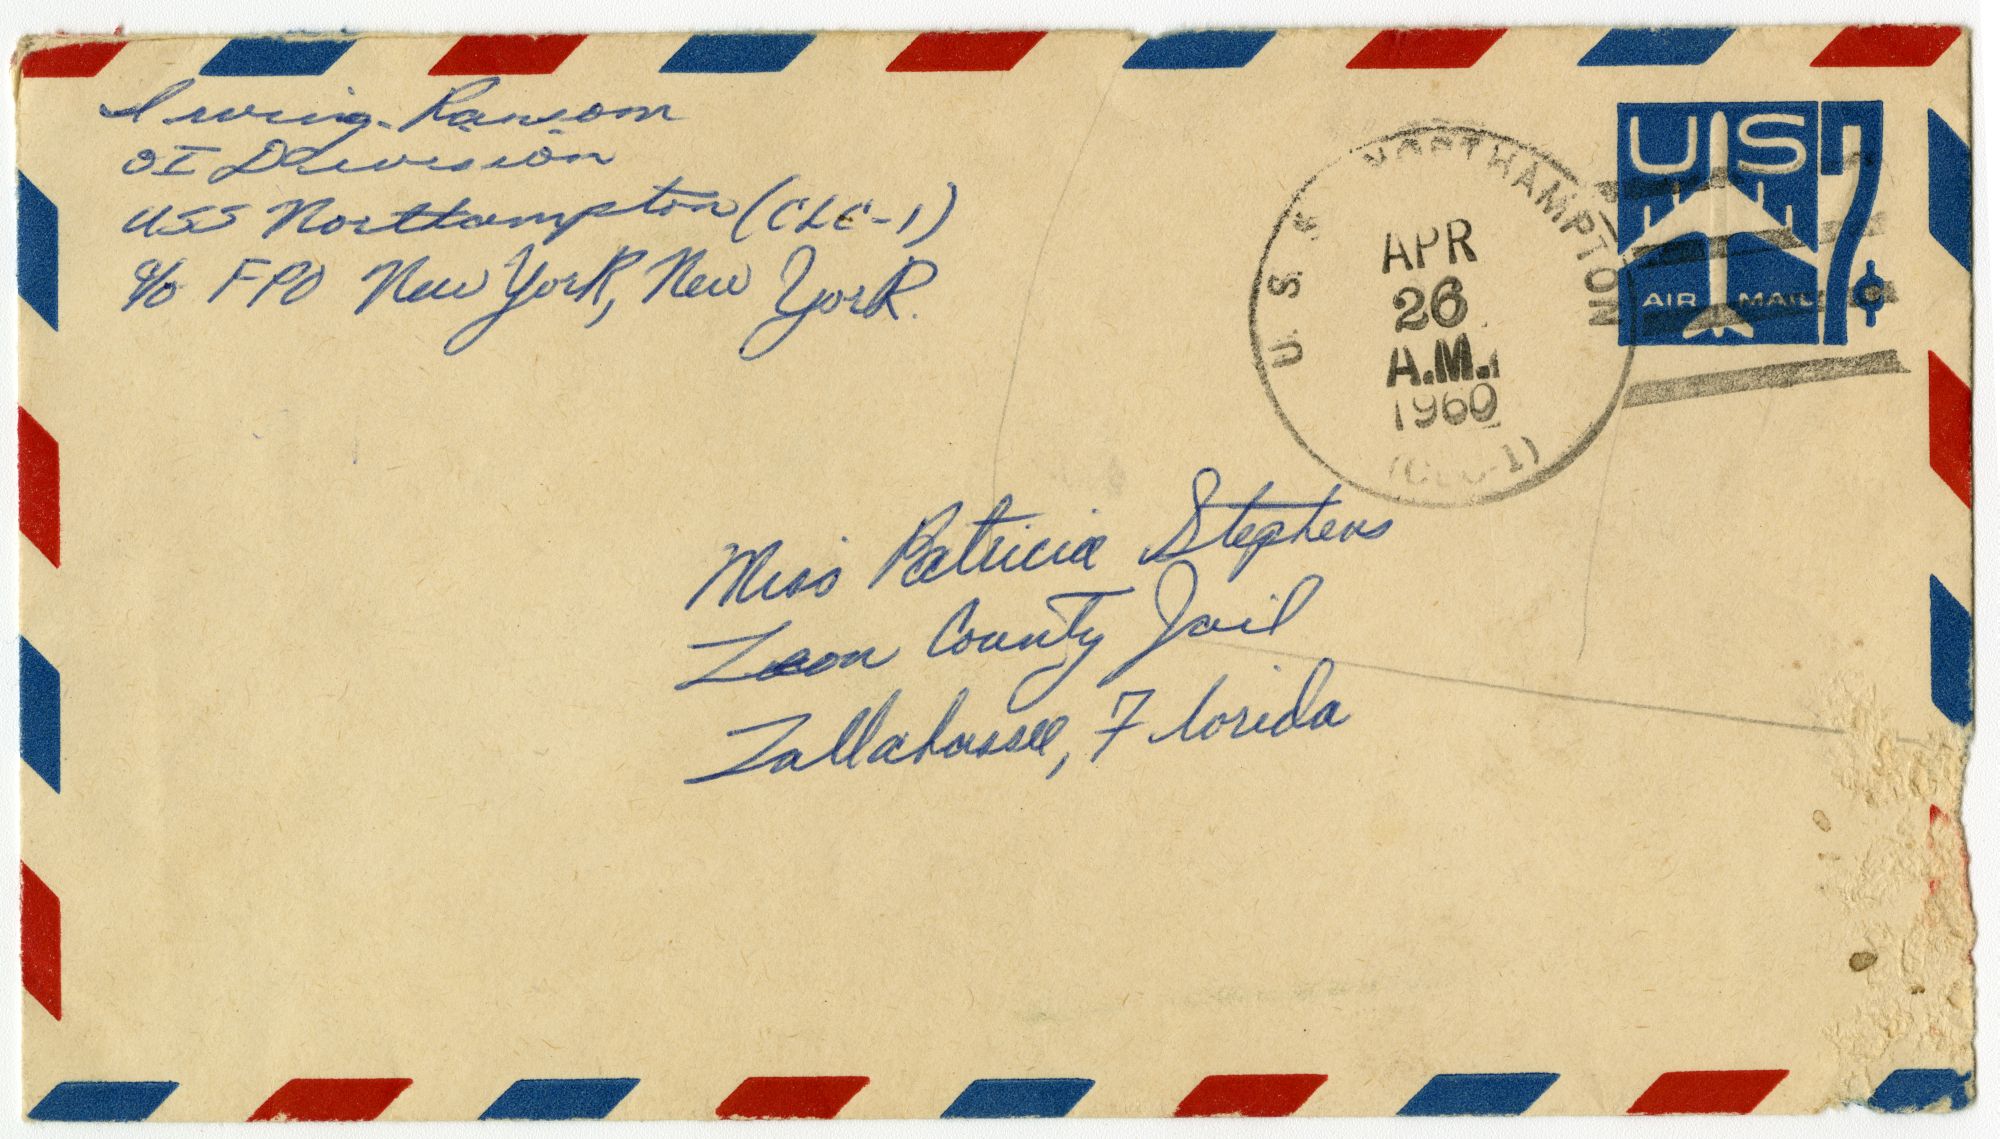 Irving Ransom
OI Division
USS Northampton (CLC-1)
c/o FPO New York, New York.
U.S.S. NORTHAMPTON
APR
26
A.M.
1960
(CLC-1)
US 7¢
AIR MAIL
Miss Patricia Stephens
Leon County Jail
Tallahassee, Florida